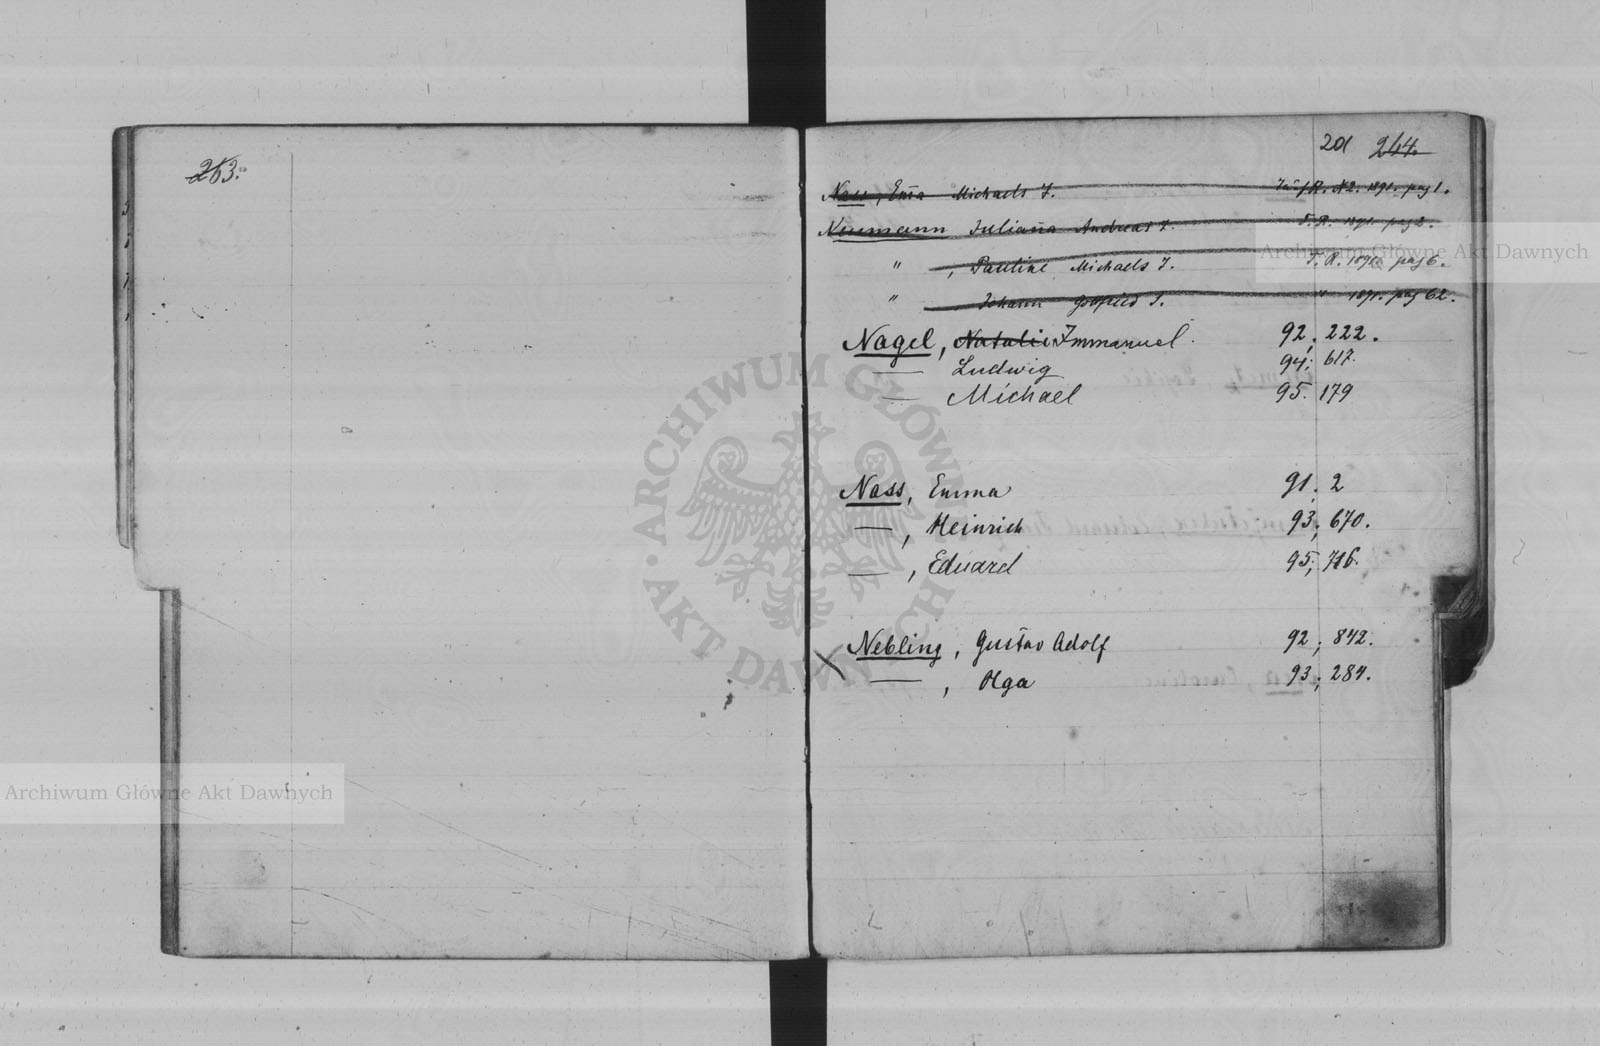 263.
201 264.
Nass, Em̄a Michaels T. Tauf R. N2. 1891. pag 1.
Neumann Julian̄a Andreas T. T. R. 1891. pag 2.
" , Pauline Michaels T. T. R. 1891. pag 6.
" Johann Gottfried S. " 1891. pag 62.
Nagel, Natalie Immanuel. 92, 222.
— Ludwig 94; 617.
— Michael 95. 179
Nass, Emma 91; 2
— , Heinrich 93; 670.
— , Eduard 95; 716.
Nebling, Gustav Adolf 92; 842.
— , Olga 93; 284.
Archiwum Główne Akt Dawnych
Archiwum Główne Akt Dawnych
ARCHIWUM GŁÓWNE AKT DAWNYCH